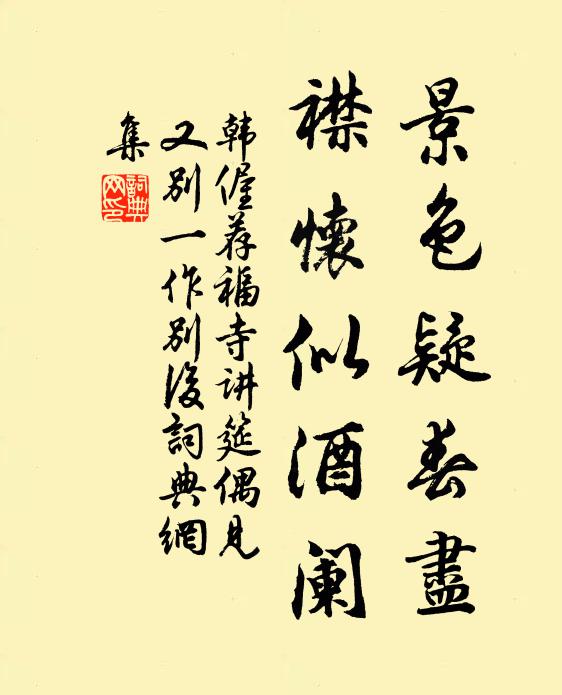 景色疑春盡
襟懷似酒闌
韩偓荐福寺讲筵偶见
又别一作别后詞典網
集
詞典網印